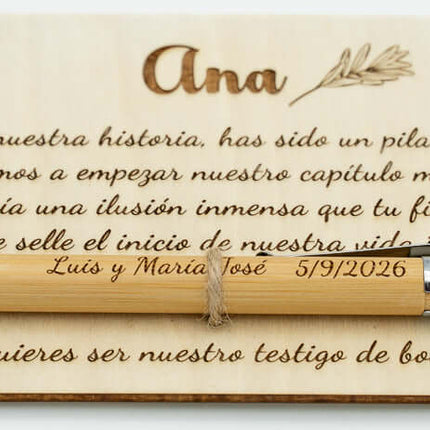 Ana
nuestra historia, has sido un pila
mos a empezar nuestro capítulo m
ía una ilusión inmensa que tu fi
e selle el inicio de nuestra vida
Luis y María José 5/9/2026
uieres ser nuestro testigo de bo